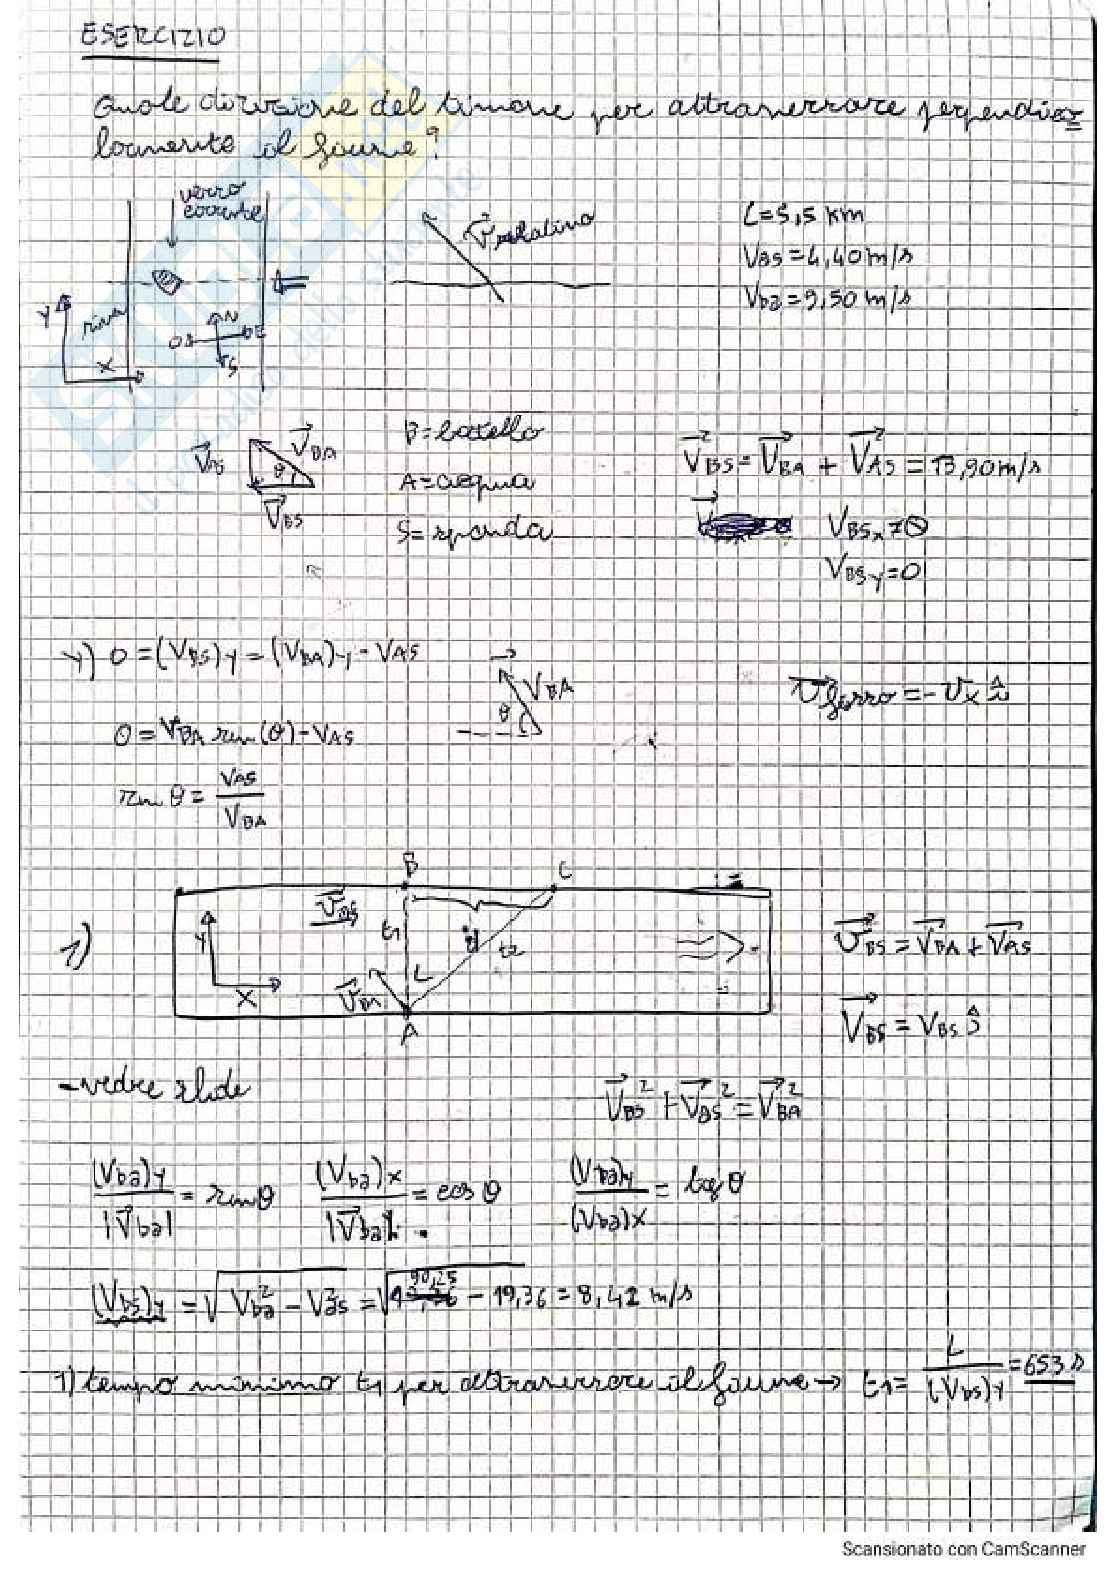 ESERCIZIO
Quale direzione del timone per attraversare perpendico=
larmente il fiume?
verso
corrente
riva
Y
X
N
O
E
S
V relativo
L=5,5 km
VBS=4,40m/s
Vba=9,50 m/s
VAS
VBA
θ
VBS
B=battello
A=acqua
S=sponda
VBS=VBA + VAS=13,90m/s
VBSx≠0
VBSY=0
Y) 0=(VBS)Y=(VBA)Y-VAS
VBA
θ
Vfarro=-Vx î
0=VBA sen(θ)-VAS
sen θ= VAS
VBA
1)
B
C
VBS
t1
t2
θ
Y
X
L
VBA
A
VBS=VBA+VAS
VBS=VBS ĵ
-vedere slide
VBS²+VAS²=VBA²
(Vba)Y
|Vba| =senθ
(Vba)x
|Vba| =cosθ
(Vba)y
(Vba)x = tgθ
(Vbs)Y=√Vba²-Vas²=√90,25-19,36=8,42 m/s
1) tempo minimo t1 per attraversare il fiume→ t1= L
(Vbs)Y =653s
Scansionato con CamScanner